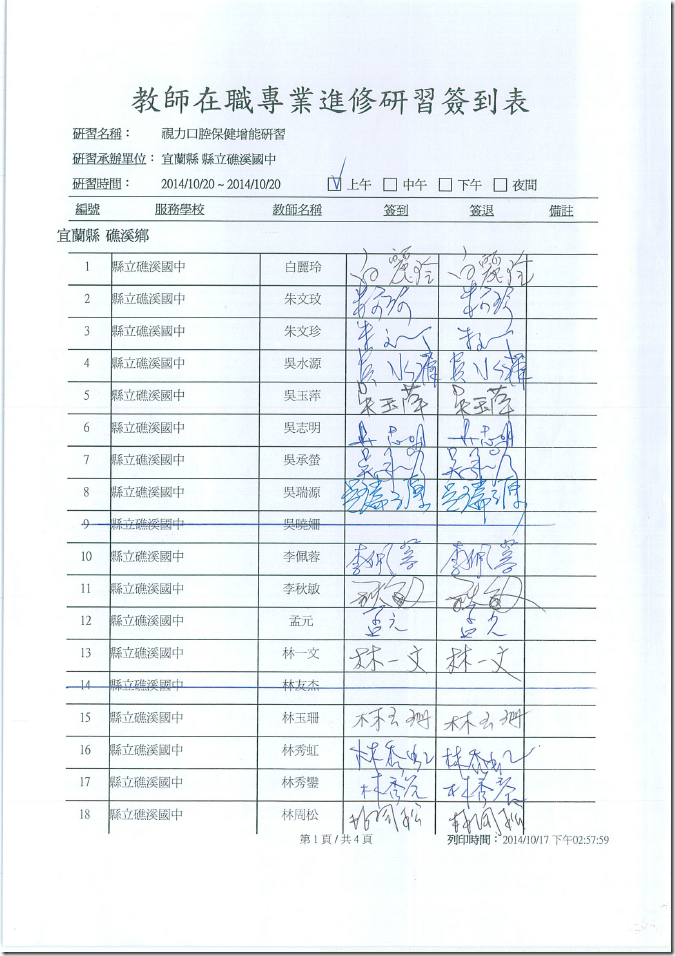 教師在職專業進修研習簽到表
研習名稱： 視力口腔保健增能研習
研習承辦單位： 宜蘭縣 縣立礁溪國中
研習時間： 2014/10/20 ~ 2014/10/20 ☑ 上午 □ 中午 □ 下午 □ 夜間
編號 服務學校 教師名稱 簽到 簽退 備註
宜蘭縣 礁溪鄉
1 縣立礁溪國中 白麗玲 白麗玲 白麗玲
2 縣立礁溪國中 朱文玟
3 縣立礁溪國中 朱文珍
4 縣立礁溪國中 吳水源 吳水源 吳水源
5 縣立礁溪國中 吳玉萍 吳玉萍 吳玉萍
6 縣立礁溪國中 吳志明 吳志明 吳志明
7 縣立礁溪國中 吳承螢
8 縣立礁溪國中 吳瑞源 吳瑞源 吳瑞源
9 縣立礁溪國中 吳曉姍
10 縣立礁溪國中 李佩蓉 李佩蓉 李佩蓉
11 縣立礁溪國中 李秋敏
12 縣立礁溪國中 孟元 孟元 孟元
13 縣立礁溪國中 林一文 林一文 林一文
14 縣立礁溪國中 林友杰
15 縣立礁溪國中 林玉珊 林玉珊 林玉珊
16 縣立礁溪國中 林秀虹 林秀虹 林秀虹
17 縣立礁溪國中 林秀鑾
18 縣立礁溪國中 林周松 林周松 林周松
第 1 頁 / 共 4 頁 列印時間： 2014/10/17 下午02:57:59